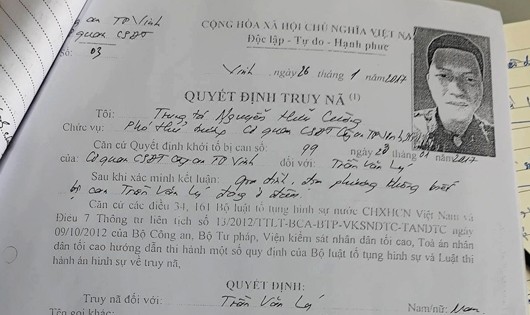 CÔNG AN TP Vinh
Cơ quan CSĐT
Số: 03
CỘNG HÒA XÃ HỘI CHỦ NGHĨA VIỆT NA
Độc lập - Tự do - Hạnh phúc
Vinh, ngày 26 tháng 1 năm 2017
QUYẾT ĐỊNH TRUY NÃ (1)
Tôi: Trung tá Nguyễn Hữu Cường
Chức vụ: Phó thủ trưởng Cơ quan CSĐT Công an TP Vinh,
Căn cứ Quyết định khởi tố bị can số: 99 ngày 28 tháng 01 năm 2017
của: Cơ quan CSĐT Công an TP Vinh đối với: Trần Văn Lý
Sau khi xác minh kết luận: Gia đình, địa phương không biết
bị can Trần Văn Lý đang ở đâu.
Căn cứ các điều 34, 161 Bộ luật tố tụng hình sự nước CHXHCN Việt Nam và
Điều 7 Thông tư liên tịch số 13/2012/TTLT-BCA-BTP-VKSNDTC-TANDTC ngày
09/10/2012 của Bộ Công an, Bộ Tư pháp, Viện kiểm sát nhân dân tối cao, Toà án nhân
dân tối cao hướng dẫn thi hành một số quy định của Bộ luật tố tụng hình sự và Luật thi
hành án hình sự về truy nã,
QUYẾT ĐỊNH:
Truy nã đối với: Trần Văn Lý Nam/nữ: Nam
Tên gọi khác: